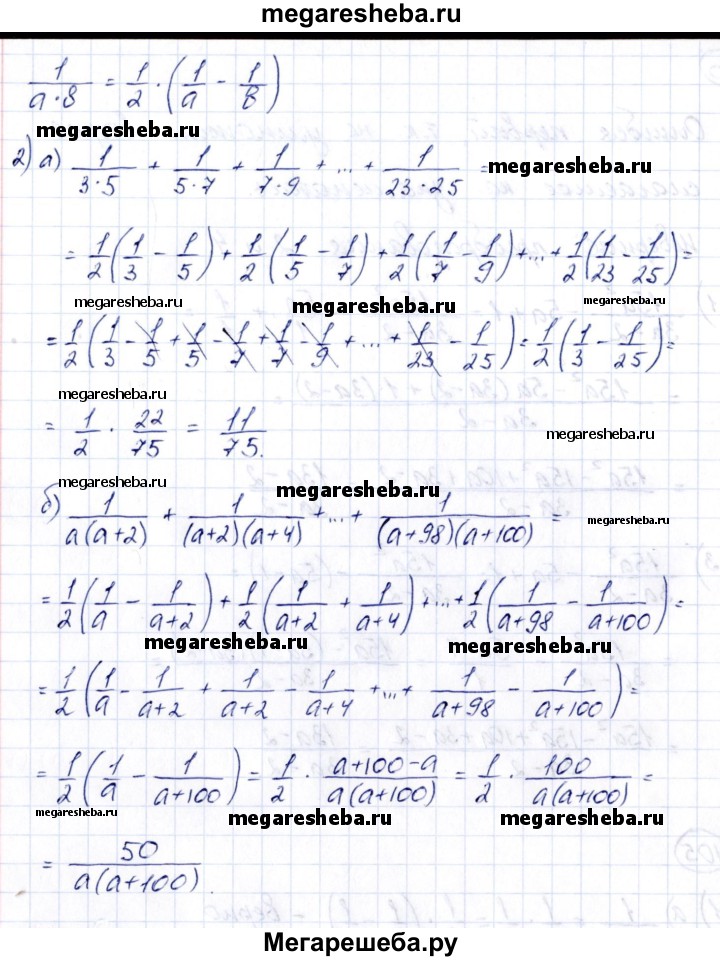 megaresheba.ru
1/(a·8) = 1/2 · (1/a - 1/8)
megaresheba.ru
2) а) 1/(3·5) + 1/(5·7) + 1/(7·9) + ... + 1/(23·25) = megaresheba.ru
= 1/2(1/3 - 1/5) + 1/2(1/5 - 1/7) + 1/2(1/7 - 1/9) + ... + 1/2(1/23 - 1/25) =
megaresheba.ru megaresheba.ru megaresheba.ru
= 1/2(1/3 - 1/5 + 1/5 - 1/7 + 1/7 - 1/9 + ... + 1/23 - 1/25) = 1/2(1/3 - 1/25) =
megaresheba.ru
= 1/2 · 22/75 = 11/75.
megaresheba.ru
megaresheba.ru megaresheba.ru
б) 1/(a(a+2)) + 1/((a+2)(a+4)) + ... + 1/((a+98)(a+100)) = megaresheba.ru
= 1/2(1/a - 1/(a+2)) + 1/2(1/(a+2) + 1/(a+4)) + ... + 1/2(1/(a+98) - 1/(a+100)) =
megaresheba.ru megaresheba.ru
= 1/2(1/a - 1/(a+2) + 1/(a+2) - 1/(a+4) + ... + 1/(a+98) - 1/(a+100)) =
= 1/2(1/a - 1/(a+100)) = 1/2 · (a+100-a)/(a(a+100)) = 1/2 · 100/(a(a+100)) =
megaresheba.ru megaresheba.ru megaresheba.ru
= 50/(a(a+100)).
Мегарешеба.ру